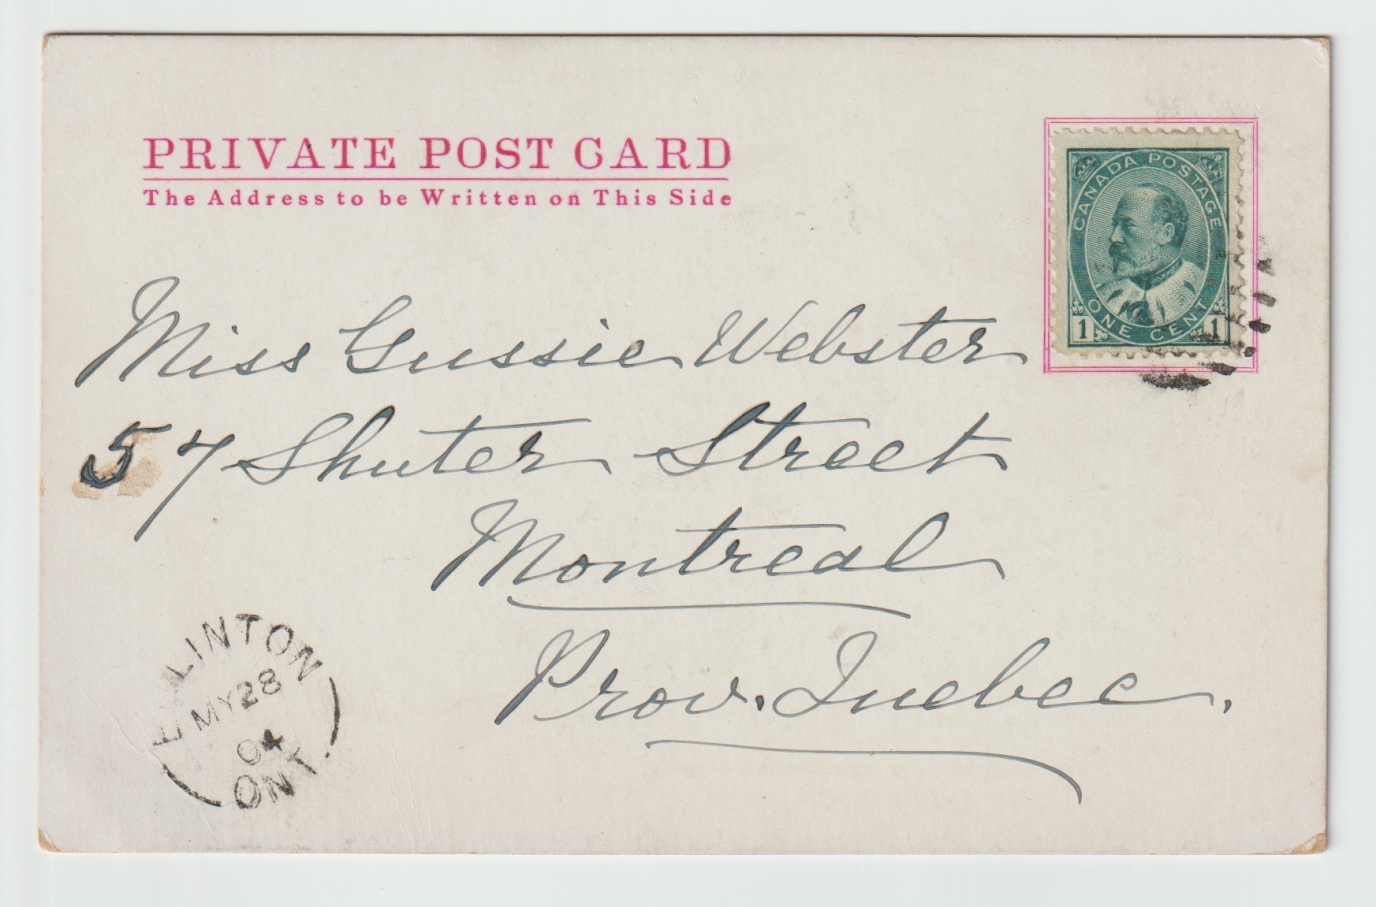 PRIVATE POST CARD
The Address to be Written on This Side
CANADA POSTAGE
ONE CENT
1 1
Miss Gussie Webster
57 Shuter Street
Montreal
Prov. Quebec.
LINTON
MY 28
04
ONT.